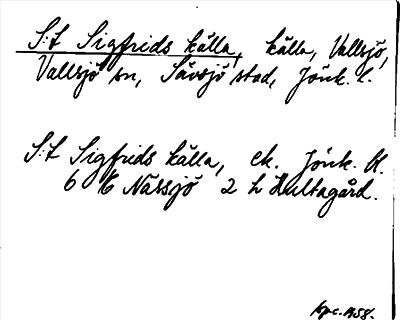 S:t Sigfrids källa, källa, Vallsjö,
Vallsjö sn, Sävsjö stad, Jönk. l.
S:t Sigfrids källa, ek. Jönk. U.
6 K Nässjö 2 h Hultagård.
1958.